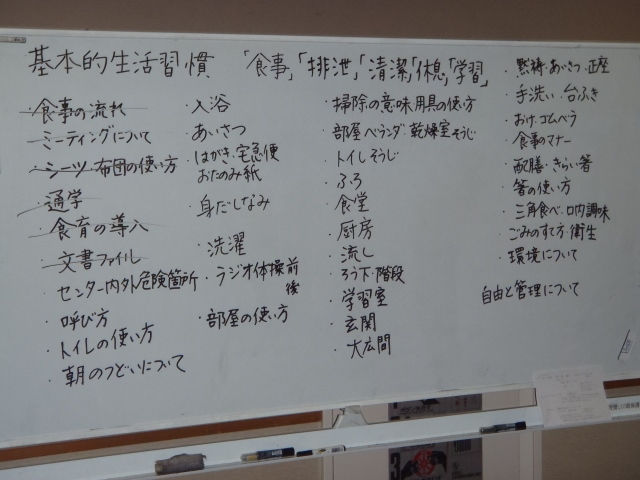 基本的生活習慣 「食事」「排泄」「清潔」「休息」「学習」
・食事の流れ
・ミーティングについて
・シーツ・布団の使い方
・通学
・食育の導入
・文書ファイル
・センター内外危険箇所
・呼び方
・トイレの使い方
・朝のつどいについて
・入浴
・あいさつ
・はがき・宅急便
おたのみ紙
・身だしなみ
・洗濯
・ラジオ体操前
後
・部屋の使い方
・掃除の意味.用具の使い方
・部屋.ベランダ.乾燥室そうじ
・トイレそうじ
・ふろ
・食堂
・厨房
・流し
・ろう下・階段
・学習室
・玄関
・大広間
・黙祷・あいさつ・正座
・手洗い・台ふき
・おけ・ゴムベラ
・食事のマナー
・配膳・きらい箸
・箸の使い方
・三角食べ・口内調味
・ごみのすて方・衛生
・環境について
自由と管理について